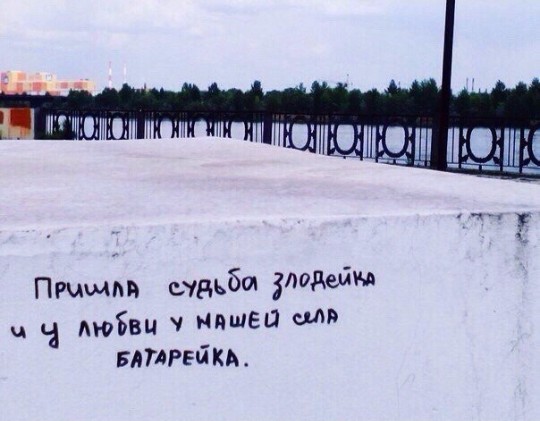 Пришла судьба злодейка
и у любви у нашей села
БАТАРЕЙКА.